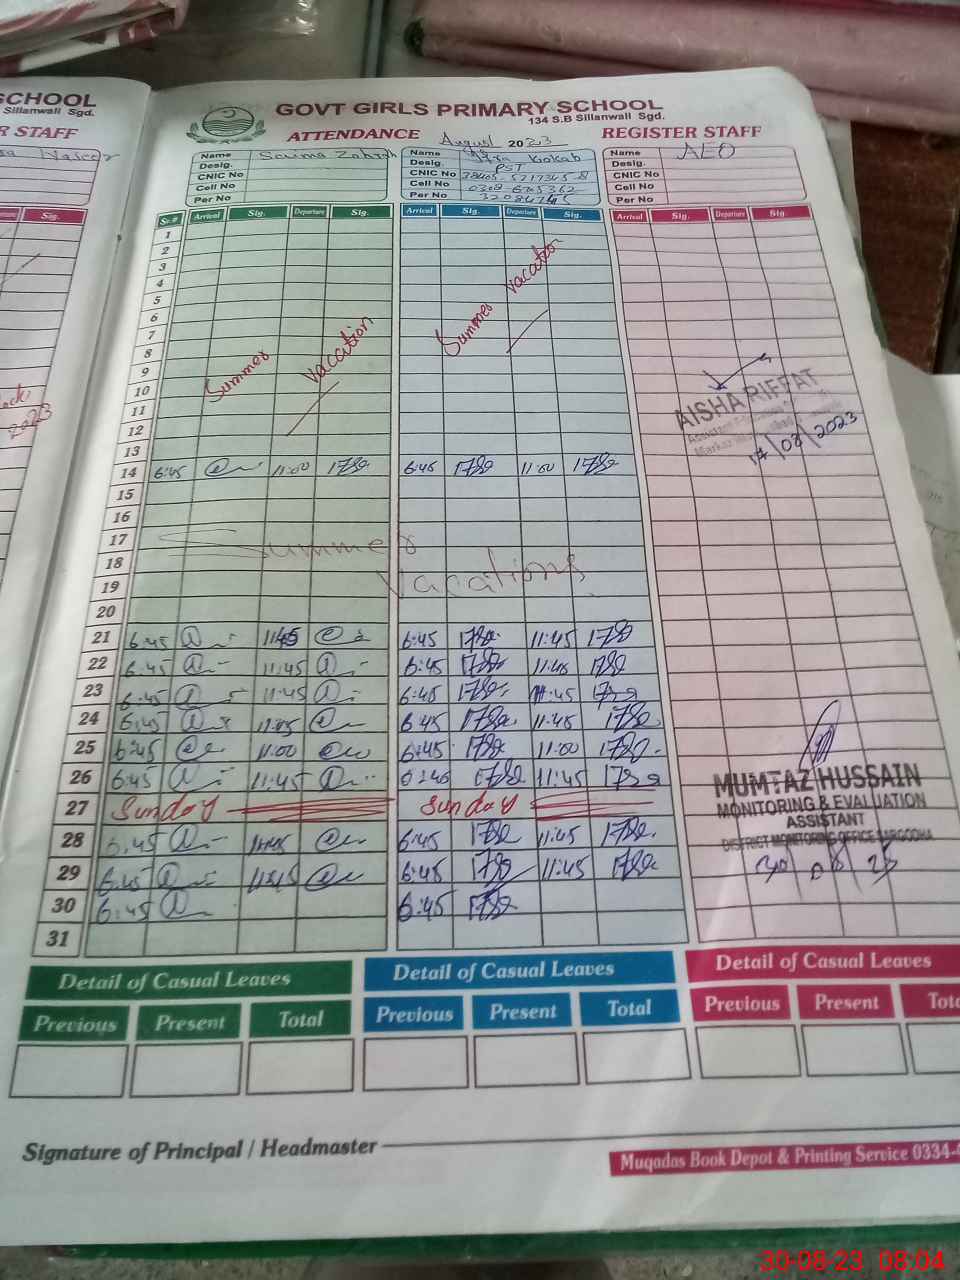 SCHOOL
Sillanwali Sgd.
R STAFF
Naseer
Sig.
2023
GOVT GIRLS PRIMARY SCHOOL
134 S.B Sillanwali Sgd.
ATTENDANCE
August 2023
REGISTER STAFF
Name Saima Zahrah
Desig.
CNIC No
Cell No
Per No
Name Iqra Kokab
Desig. PST
CNIC No
Cell No
Per No
Name AEO
Desig.
CNIC No
Cell No
Per No
Sr.# Arrival Sig. Departure Sig. Arrival Sig. Departure Sig. Arrival Sig. Departure Sig.
1
2
3
4
5
6
7
8
9
10
11
12
13
Summer Vacation
Summer Vacation
AISHA RIFFAT
14/08/2023
14 6:45 11:00 6:45 11:00
15
16
17
18
19
20
Summer
Vacations
21 6:45 11:45 6:45 11:45
22 6:45 11:45 6:45 11:45
23 6:45 11:45 6:45 11:45
24 6:45 11:45 6:45 11:45
25 6:45 11:00 6:45 11:00
26 6:45 11:45 6:45 11:45
27 Sunday Sunday
28 6:45 11:45 6:45 11:45
29 6:45 11:45 6:45 11:45
30 6:45 6:45
31
MUMTAZ HUSSAIN
MONITORING & EVALUATION
ASSISTANT
DISTRICT MONITORING OFFICE SARGODHA
30 08 23
Detail of Casual Leaves Detail of Casual Leaves Detail of Casual Leaves
Previous Present Total Previous Present Total Previous Present Tota
Signature of Principal / Headmaster
Muqadas Book Depot & Printing Service 0334-
30-08-23 08:04